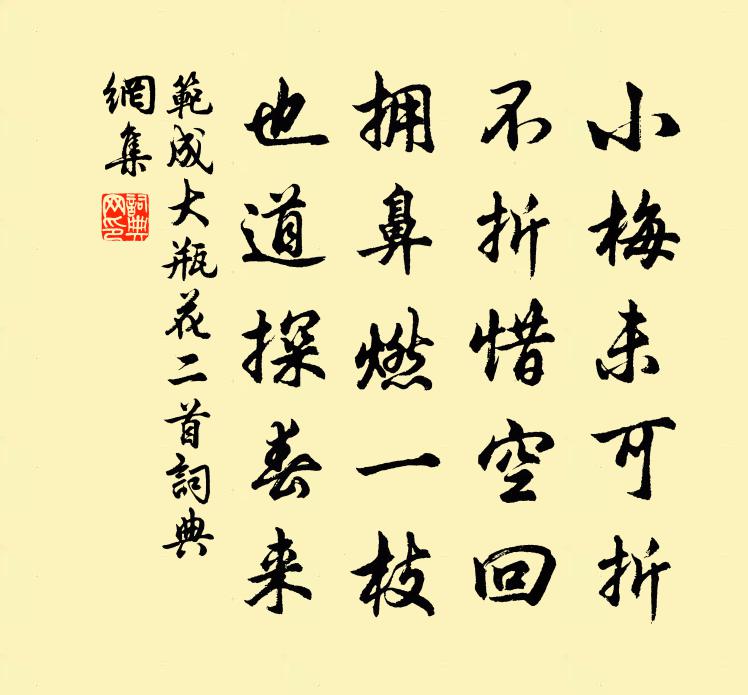 小梅未可折
不折惜空回
拥鼻燃一枝
也道探春来
範成大瓶花二首詞典
網集
詞典
网印